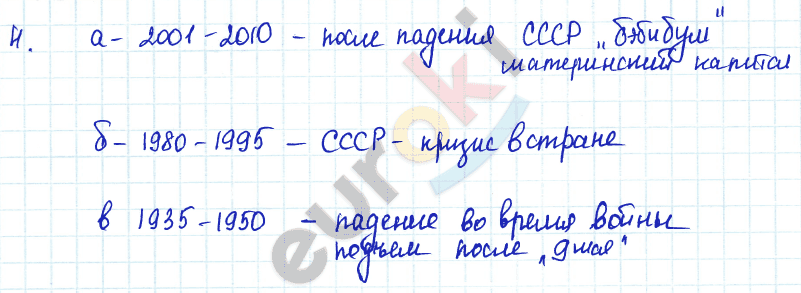 4. а - 2001 - 2010 - после падения СССР „бэбибум"
материнский капитал
б - 1980 - 1995 - СССР - кризис в стране
в 1935 - 1950 - падение во время войны
подъем после
euroki